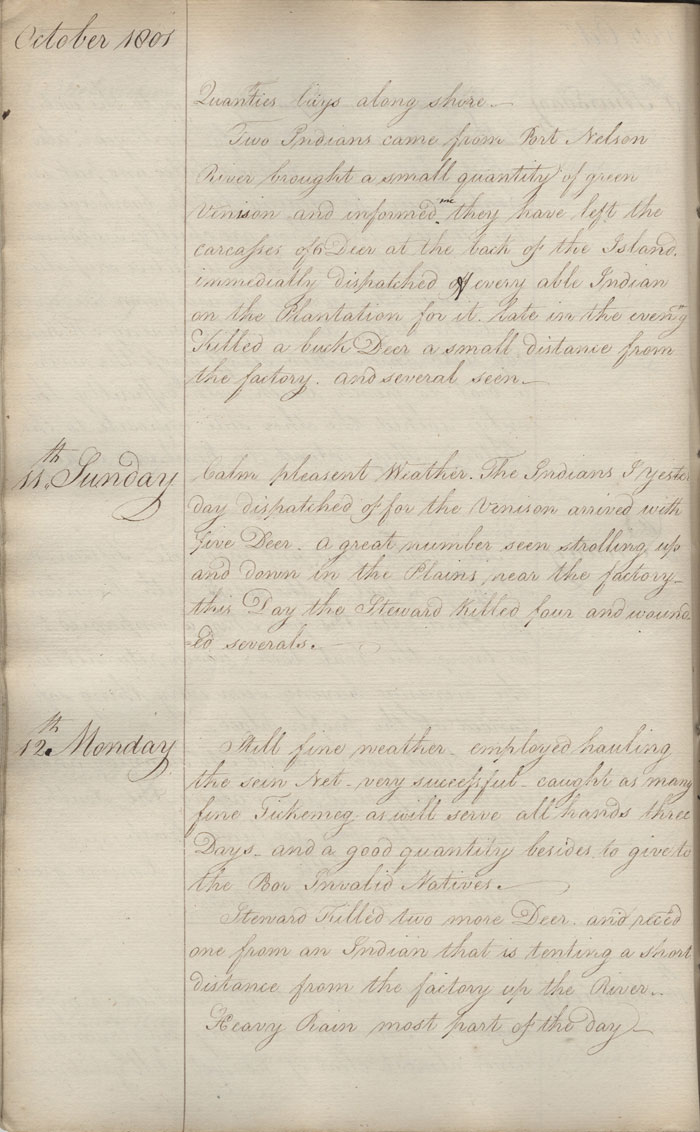 October 1801
Quanties lays along shore.
Two Indians came from Port Nelson
River brought a small quantity of green
Venison and informed me they have left the
carcasses of 6 Deer at the back of the Island.
immedially dispatched of every able Indian
on the Plantation for it. Late in the eveng
Killed a buck Deer a small distance from
the factory. and several seen
11th Sunday
Calm pleasent Weather. The Indians I yester
day dispatched of for the Venison arrived with
five Deer. a great number seen strolling up
and down in the Plains, near the factory
this Day the Steward Killed four and wound
ed severals.
12th Monday
Still fine weather employed hauling
the sein Net very successful caught as many
fine Tickemeg as will serve all hands three
Days and a good quantity besides to give to
the Poor Invalid Natives.
Steward Killed two more Deer. and reced
one from an Indian that is tenting a short
distance from the factory up the River.
Heavy Rain most part of the day